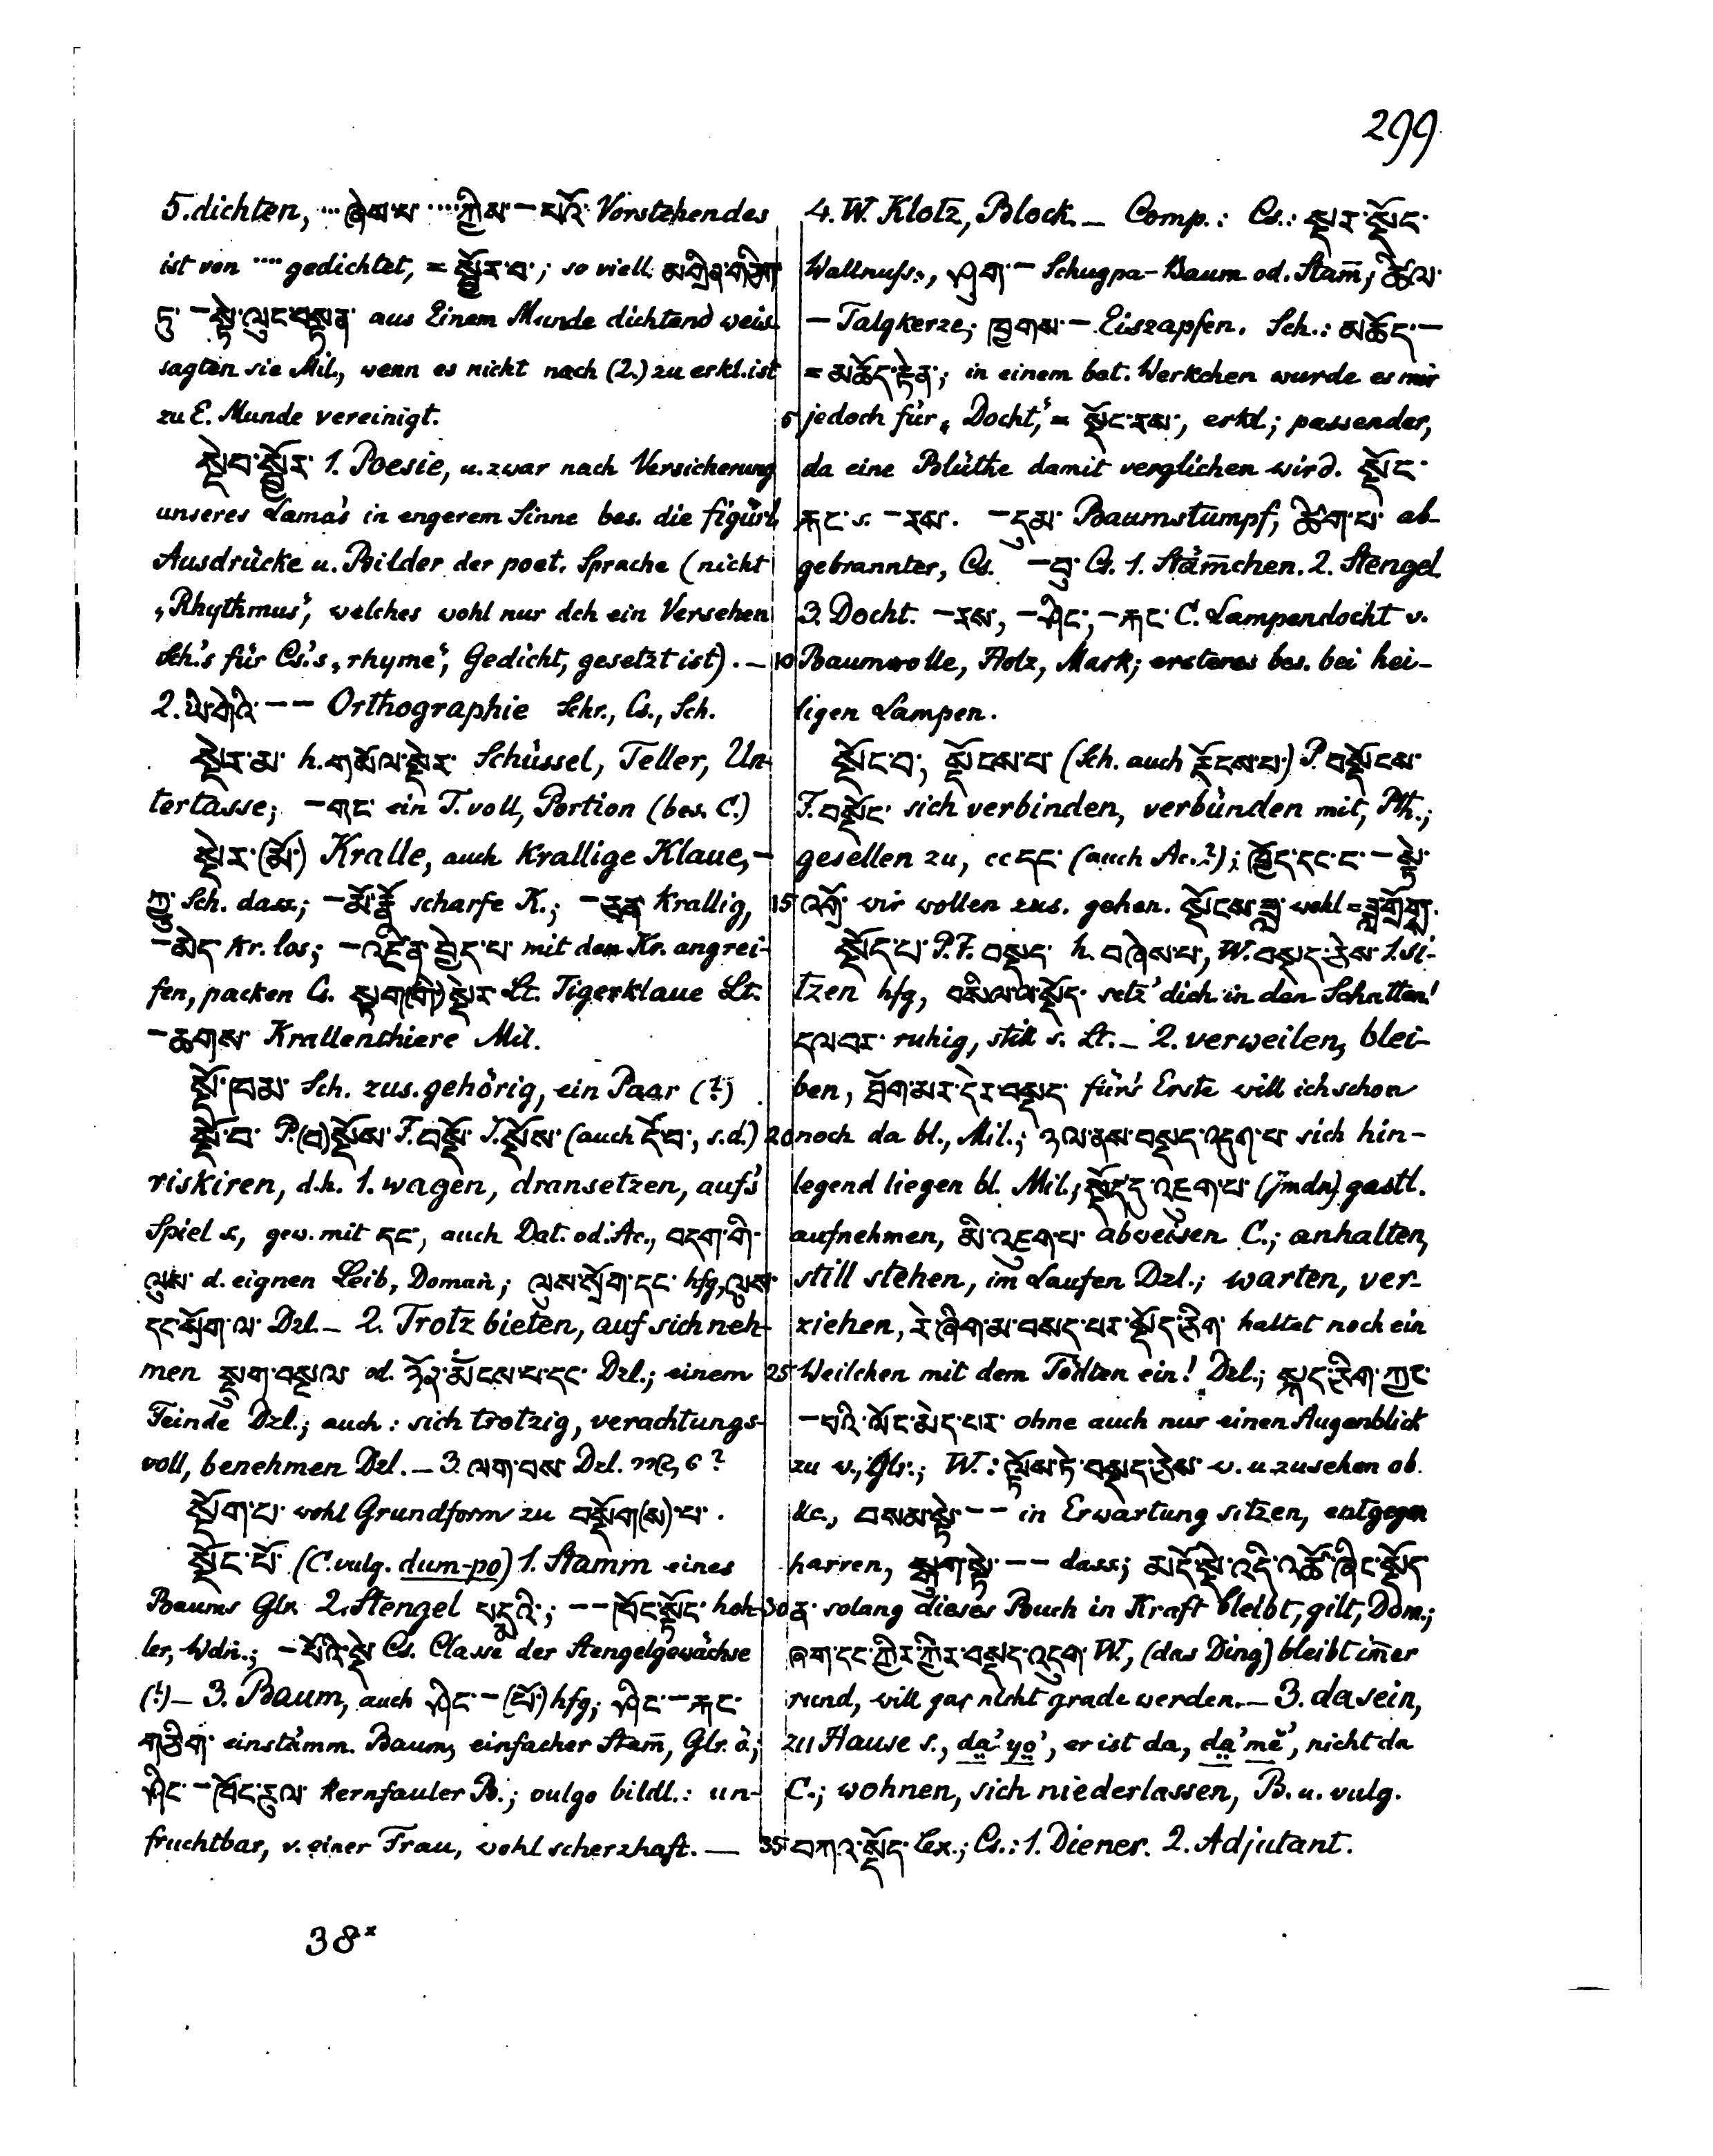 299
5. dichten, ··· ཞེས་པ་ ···· ཀྱིས་ – པའོ་ Vorstehendes
ist von ···· gedichtet, = སྦྱོར་བ་; so viell. མགྲིན་གཅིག་
ཏུ་ – སྟེ་ལུང་བསྟན་ aus Einem Munde dichtend weis-
sagten sie Mil., wenn es nicht nach (2.) zu erkl. ist
zu E. Munde vereinigt.
སྡེབ་སྦྱོར་ 1. Poesie, u. zwar nach Versicherung
unseres Lama's in engerem Sinne bes. die figürl.
Ausdrücke u. Bilder der poet. Sprache (nicht
„Rhythmus", welches wohl nur dch ein Versehen
Sch.'s für Cs.'s „rhyme", Gedicht, gesetzt ist). –
2. ཡི་གེའི་ – – Orthographie Schr., Cs., Sch.
སྡེར་མ་ h. གསོལ་སྡེར་ Schüssel, Teller, Un-
tertasse; – གང་ ein T. voll, Portion (bes. C.)
སྡེར་(མོ་) Kralle, auch krallige Klaue, –
ཀྱུ་ Sch. dass.; – མོ་རྣོ་ scharfe K.; – ཅན་ krallig,
– མེད་ kr. los; – འཛིན་བྱེད་པ་ mit den Kr. angrei-
fen, packen Cs. སྟག་(གི་)སྡེར་ Lt. Tigerklaue Lt.
– ཆགས་ Krallenthiere Mil.
སྡོ་ཁམ་ Sch. zus. gehörig, ein Paar (?)
སྡོ་བ་ P. (བ)སྡོས་ F. བསྡོ་ I. སྡོས་ (auch དོ་བ་, s.d.)
riskiren, d.h. 1. wagen, dransetzen, auf's
Spiel s., gew. mit དང་, auch Dat. od. Ac., བདག་གི་
ལུས་ d. eignen Leib, Doman̄; ལུས་སྲོག་དང་ hfg, ལུས་
དང་སྲོག་ལ་ Dzl. – 2. Trotz bieten, auf sich neh-
men སྡུག་བསྔལ་ od. ཉོན་མོངས་པ་དང་ Dzl.; einem
Feinde Dzl.; auch: sich trotzig, verachtungs-
voll, benehmen Dzl. – 3. ལག་བས་ Dzl.
སྡོག་པ་ wohl Grundform zu བསྡོག(ས)་པ་.
སྡོང་པོ་ (C. vulg. dum-po) 1. Stamm eines
Baums Glr. 2. Stengel པདྨའི་; – – ཁོང་སྟོང་ hoh-
ler, Wdn̄.; – པོའི་སྡེ་ Cs. Classe der Stengelgewächse
(?) – 3. Baum, auch ཤིང་ – (པོ་) hfg; ཤིང་ – རྐང་
གཅིག་ einstämm. Baum, einfacher Stam̄, Glr. ö.;
ཤིང་ – ཁོང་རུལ་ kernfauler B.; vulgo bildl.: un-
fruchtbar, v. einer Frau, wohl scherzhaft. –
38*
4. W. Klotz, Block. – Comp.: Cs.: སྟར་སྡོང་
Wallnufs:, ཤུག་ – Schugpa-Baum od. Stam̄; ཚིལ་
– Talgkerze; ཁྱགས་ – Eiszapfen. Sch.: མཆོད་ –
= མཆོད་རྟེན་; in einem bot. Werkchen wurde es mir
5 jedoch für „Docht", = སྡོང་རས་, erkl.; passender,
da eine Blüthe damit verglichen wird. སྡོང་
རྐང་ s. – རས་. – དུམ་ Baumstumpf; ཚིག་པ་ ab-
gebrannter, Cs. – བུ་ Cs. 1. Stäm̄chen. 2. Stengel.
3. Docht. – རས་, – ཤིང་, – རྐང་ C. Lampendocht v.
10 Baumwolle, Holz, Mark; ersteres bes. bei hei-
ligen Lampen.
སྡོང་བ་, སྡོངས་པ་ (Sch. auch རྡོངས་པ་) P. བསྡོངས་
F. བསྡོང་ sich verbinden, verbünden mit, Pth.;
gesellen zu, cc དང་ (auch Ac.?); ཁྱོད་དང་ང་ – སྟེ་
15 འགྲོ་ wir wollen zus. gehen. སྡོངས་ཟླ་ wohl = ཟླ་གྲོགས་.
སྡོད་པ་ P.F. བསྡད་ h. བཞེས་པ་, W. བསྡད་ཅེས་ 1. si-
tzen hfg, བསིལ་ལ་སྡོད་ setz' dich in den Schatten!
དལ་བར་ ruhig, still s. Lt. – 2. verweilen, blei-
ben, ཐོག་མར་དེར་བསྡད་ für's Erste will ich schon
20 noch da bl., Mil.; ཉལ་ནས་བསྡད་འདུག་པ་ sich hin-
legend liegen bl. Mil.; སྡོད་དུ་འཇུག་པ་ (jmdn) gastl.
aufnehmen, མི་འཇུག་པ་ abweisen C.; anhalten,
still stehen, im Laufen Dzl.; warten, ver-
ziehen, རེ་ཞིག་མ་བསད་པར་སྡོད་ཅིག་ haltet noch ein
25 Weilchen mit dem Tödten ein! Dzl.; སྐད་ཅིག་ཀྱང་
– པའི་ལོང་མེད་པར་ ohne auch nur einen Augenblick
zu v., Glr.; W.: ལྟོས་ཏེ་བསྡད་ཅེས་ w. u. zusehen ob.
&c., བསམ་སྟེ་ – – in Erwartung sitzen, entgegen
harren, སྒུག་སྟེ་ – – dass.; མདོ་སྡེ་འདི་འཚོ་ཞིང་སྡོད་
30 ན་ solang dieses Buch in Kraft bleibt, gilt, Dom.;
ཞག་དང་ཀྱིར་ཀྱིར་བསྡད་འདུག་ W., (das Ding) bleibt im̄er
rund, will gar nicht grade werden. – 3. dasein,
zu Hause s., da̤' yo̤', er ist da, da̤' mĕ', nicht da
C.; wohnen, sich niederlassen, B. u. vulg.
35 བཀའ་སྡོད་ Lex.; Cs.: 1. Diener. 2. Adjutant.